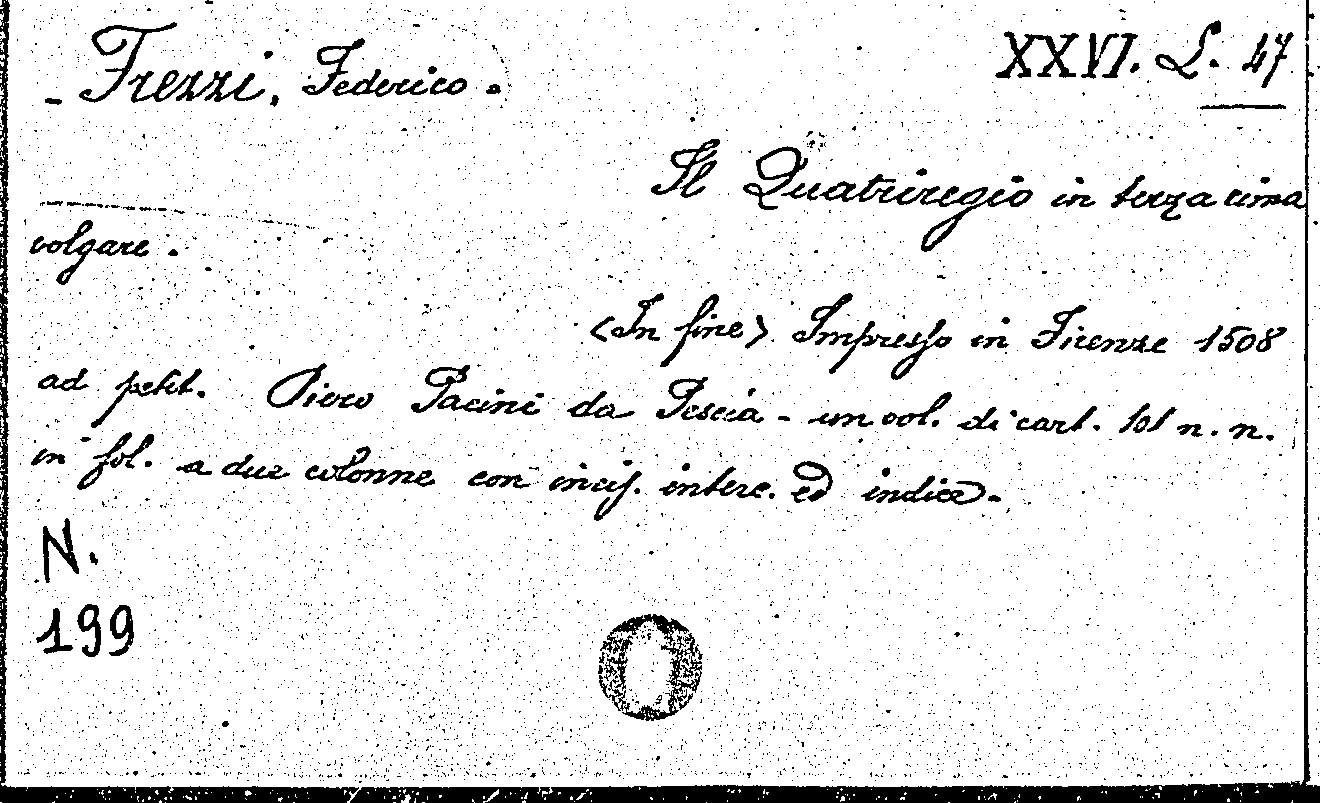 - Frezzi, Federico.
XXVI. L. 47
Il Quatriregio in terza rima
volgare.
<In fine> Impresso in Firenze 1508
ad petit. Piero Pacini da Pescia - un vol. di cart. 101 n. n.
in fol. a due colonne con incis. interc. ed indice.
N.
199